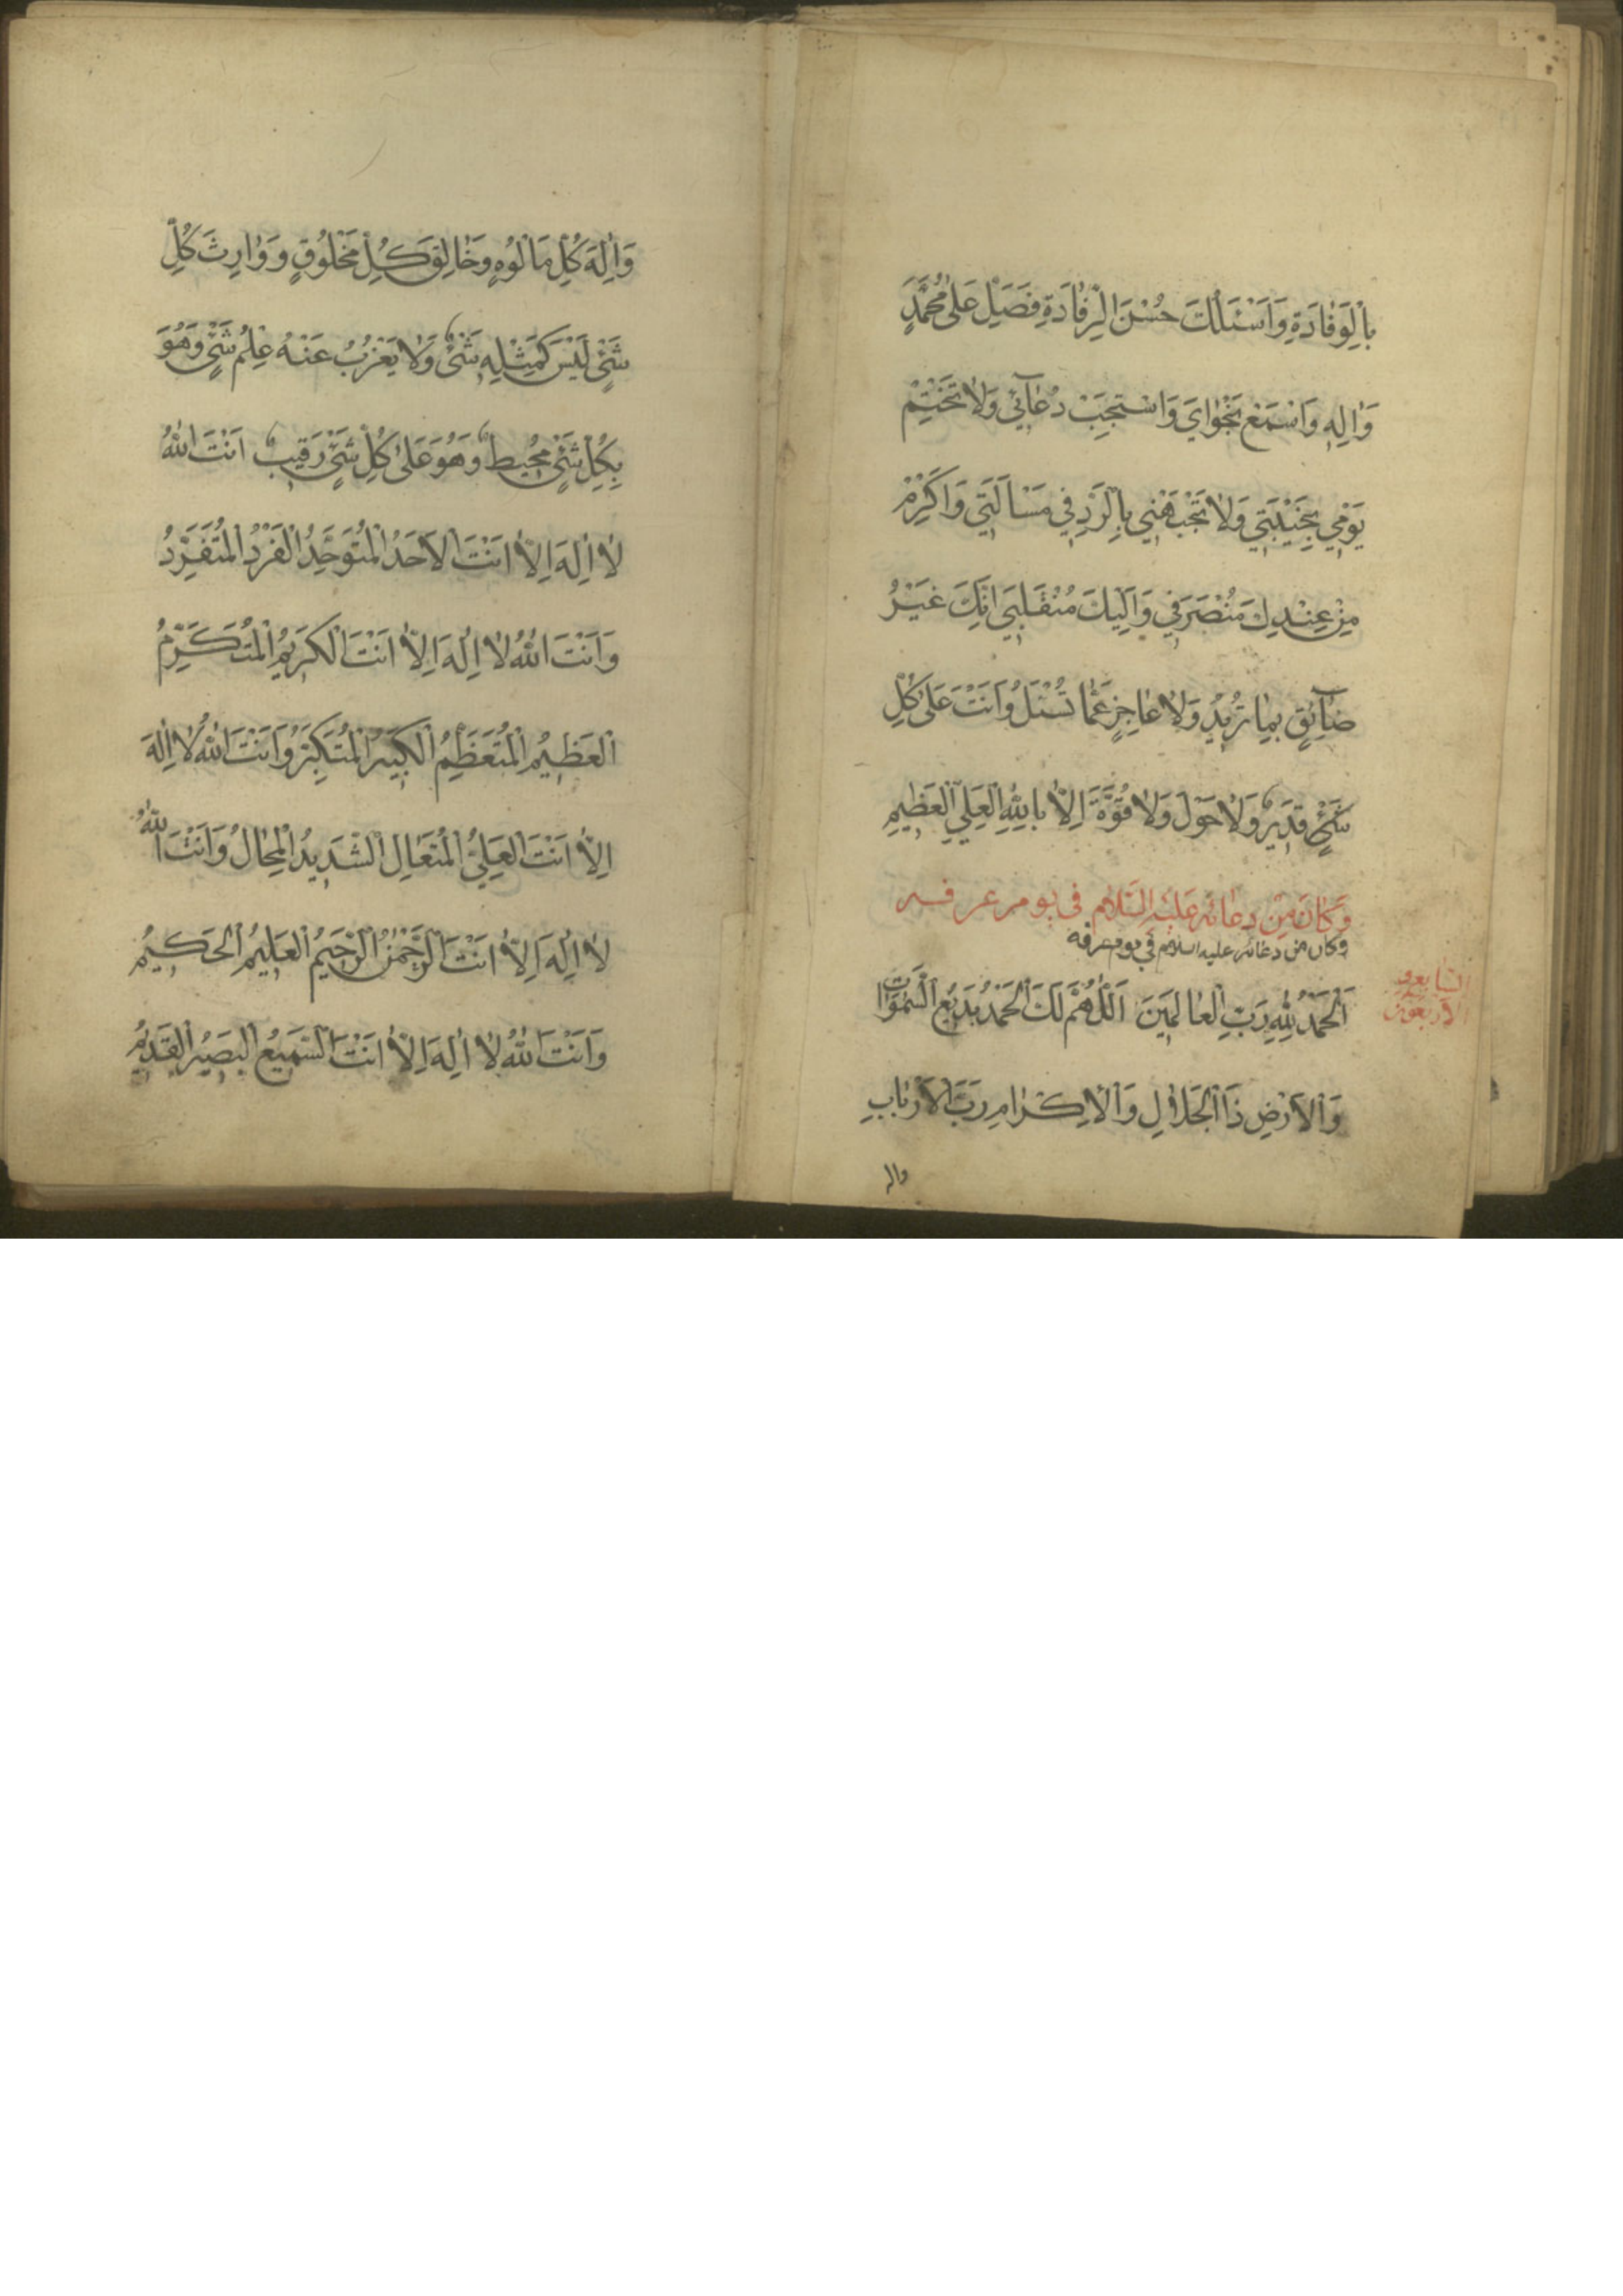 بِالْوِفَادَةِ وَاَسْئَلُكَ حُسْنَ الرِّفَادَةِ فَصَلِّ عَلىٰ مُحَمَّدٍ
وَاٰلِهِ وَاسْمَعْ نَجْوَايَ وَاسْتَجِبْ دُعَآئِي وَلَا تَخْتِمْ
يَوْمِي بِخَيْبَتِي وَلَا تَجْبَهْنِي بِالرَّدِّ فِي مَسْأَلَتِي وَاَكْرِمْ
مِنْ عِنْدِكَ مُنْصَرَفِي وَاِلَيْكَ مُنْقَلَبِي اِنَّكَ غَيْرُ
ضَآئِقٍ بِمَا تُرِيدُ وَلَا عَاجِزٍ عَمَّا تُسْئَلُ وَاَنْتَ عَلىٰ كُلِّ
شَيْءٍ قَدِيرٌ وَلَا حَوْلَ وَلَا قُوَّةَ اِلَّا بِاللّٰهِ الْعَلِيِّ الْعَظِيمِ
وَكَانَ مِنْ دعائه عَلَيْهِ السَّلَام في يوم عرفه
وكان من دعائه عليه السلام في يوم عرفه
السابع و
الاربعون
اَلْحَمْدُ لِلّٰهِ رَبِّ الْعَالَمِينَ اَللّٰهُمَّ لَكَ الْحَمْدُ بَدِيعَ السَّمٰوَاتِ
وَالْاَرْضِ ذَا الْجَلَالِ وَالْاِكْرَامِ رَبَّ الْاَرْبَابِ
واله
وَاِلٰهَ كُلِّ مَأْلُوهٍ وَخَالِقَ كُلِّ مَخْلُوقٍ وَوَارِثَ كُلِّ
شَيْءٍ لَيْسَ كَمِثْلِهِ شَيْءٌ وَلَا يَعْزُبُ عَنْهُ عِلْمُ شَيْءٍ وَهُوَ
بِكُلِّ شَيْءٍ مُحِيطٌ وَهُوَ عَلىٰ كُلِّ شَيْءٍ رَقِيبٌ اَنْتَ اللّٰهُ
لَا اِلٰهَ اِلَّا اَنْتَ الْاَحَدُ الْمُتَوَحِّدُ الْفَرْدُ الْمُتَفَرِّدُ
وَاَنْتَ اللّٰهُ لَا اِلٰهَ اِلَّا اَنْتَ الْكَرِيمُ الْمُتَكَرِّمُ
الْعَظِيمُ الْمُتَعَظِّمُ الْكَبِيرُ الْمُتَكَبِّرُ وَاَنْتَ اللّٰهُ لَا اِلٰهَ
اِلَّا اَنْتَ الْعَلِيُّ الْمُتَعَالِ الشَّدِيدُ الْمِحَالُ وَاَنْتَ اللّٰهُ
لَا اِلٰهَ اِلَّا اَنْتَ الرَّحْمٰنُ الرَّحِيمُ الْعَلِيمُ الْحَكِيمُ
وَاَنْتَ اللّٰهُ لَا اِلٰهَ اِلَّا اَنْتَ السَّمِيعُ الْبَصِيرُ الْقَدِيمُ